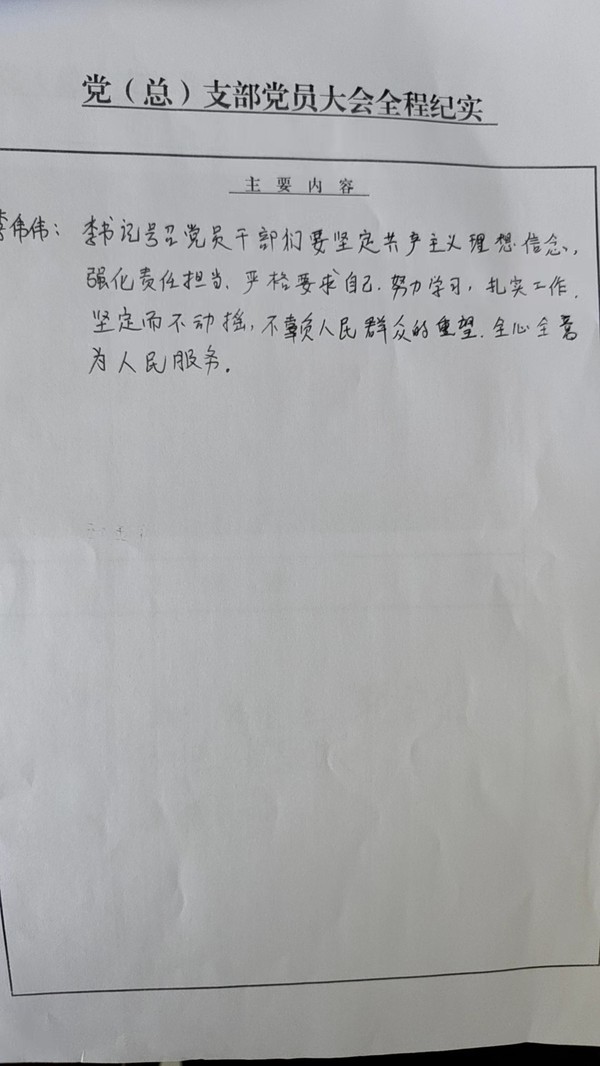 党（总）支部党员大会全程纪实
主要内容
李伟伟：李书记号召党员干部们要坚定共产主义理想信念，
强化责任担当、严格要求自己．努力学习，扎实工作．
坚定而不动摇，不辜负人民群众的重望．全心全意
为人民服务．